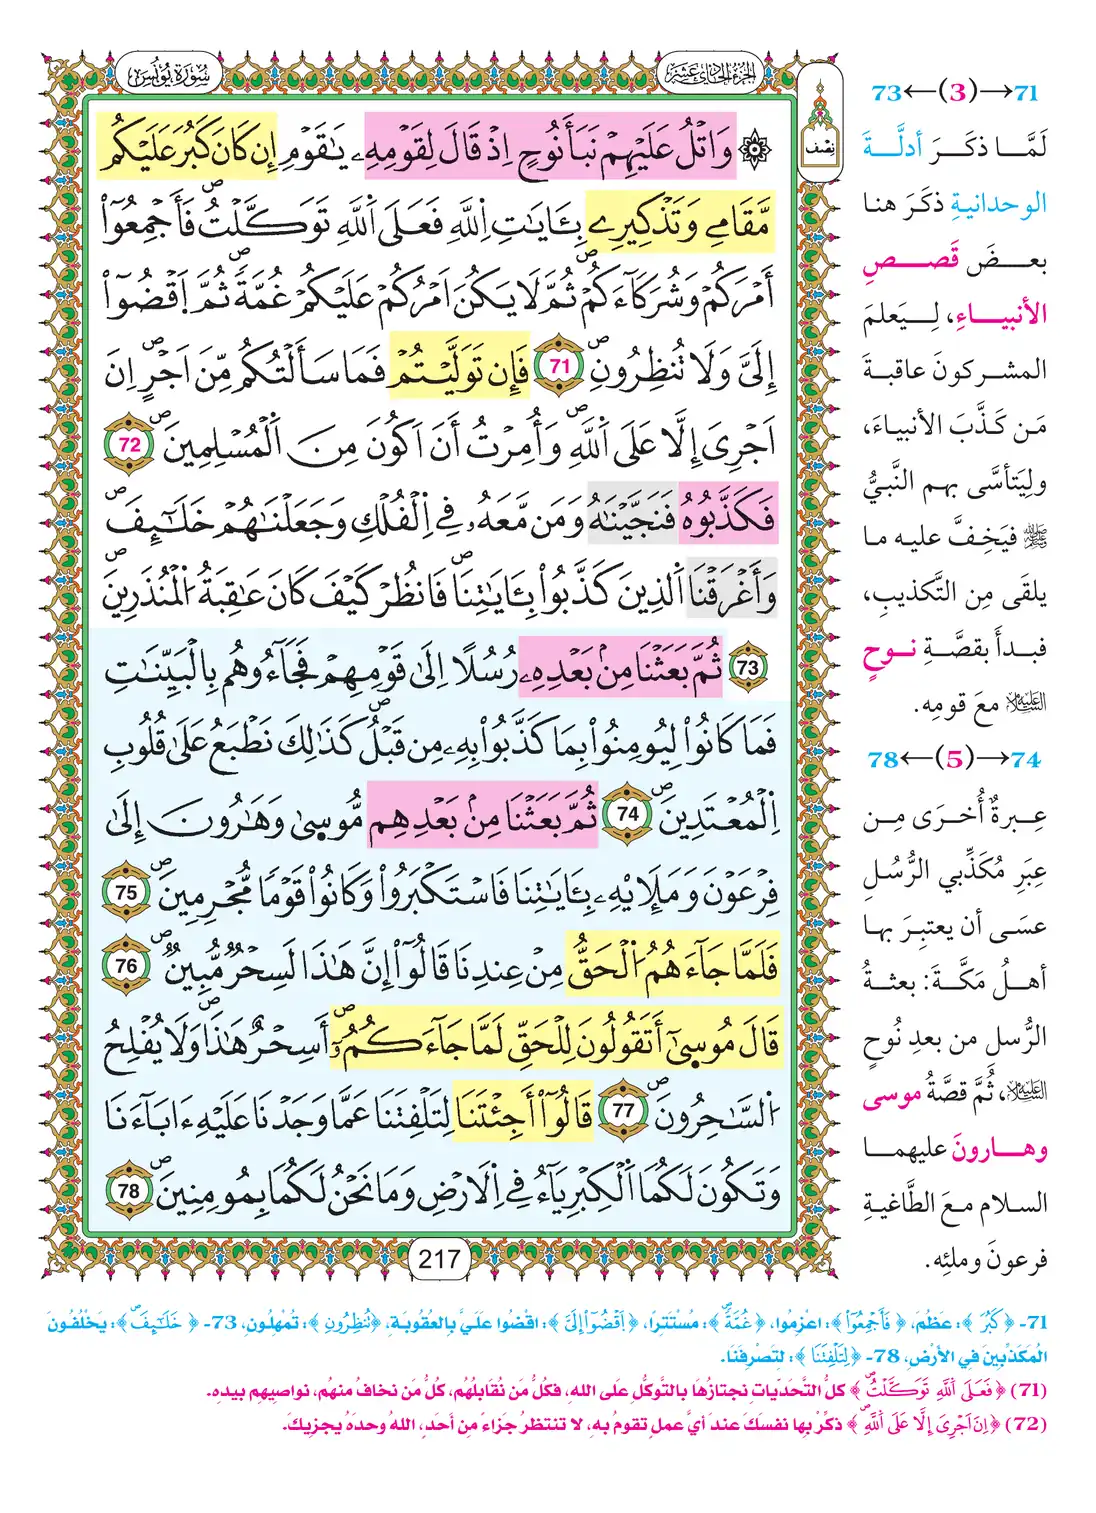 سُورَةُ يُونُسَ
الجزء الحادي عشر
نِصْف
۞ وَاتْلُ عَلَيْهِمْ نَبَأَ نُوحٍ اِذْ قَالَ لِقَوْمِهِۦ يَٰقَوْمِ إِن كَانَ كَبُرَ عَلَيْكُم
مَّقَامِے وَتَذْكِيرِے بِـَٔايَٰتِ اِ۬للَّهِ فَعَلَى اَ۬للَّهِ تَوَكَّلْتُۖ فَأَجْمِعُوٓاْ
أَمْرَكُمْ وَشُرَكَآءَكُمْۖ ثُمَّ لَا يَكُنَ اَمْرُكُمْ عَلَيْكُمْ غُمَّةٗۖ ثُمَّ اَ۪قْضُوٓاْ
إِلَيَّ وَلَا تُنظِرُونِۖ 71 فَإِن تَوَلَّيْتُمْ فَمَا سَأَلْتُكُم مِّنَ اَجْرٍۖ اِنَ
اَجْرِيَ إِلَّا عَلَى اَ۬للَّهِۖ وَأُمِرْتُ أَنَ اَكُونَ مِنَ اَ۬لْمُسْلِمِينَۖ 72
فَكَذَّبُوهُ فَنَجَّيْنَٰهُ وَمَن مَّعَهُۥ فِے اِ۬لْفُلْكِ وَجَعَلْنَٰهُمْ خَلَٰٓئِفَۖ
وَأَغْرَقْنَا اَ۬لذِينَ كَذَّبُواْ بِـَٔايَٰتِنَاۖ فَانظُرْ كَيْفَ كَانَ عَٰقِبَةُ اُ۬لْمُنذَرِينَۖ
73 ثُمَّ بَعَثْنَا مِنۢ بَعْدِهِۦ رُسُلًا اِلَىٰ قَوْمِهِمْ فَجَآءُوهُم بِالْبَيِّنَٰتِ
فَمَا كَانُواْ لِيُومِنُواْ بِمَا كَذَّبُواْ بِهِۦ مِن قَبْلُۖ كَذَٰلِكَ نَطْبَعُ عَلَىٰ قُلُوبِ
اِ۬لْمُعْتَدِينَۖ 74 ثُمَّ بَعَثْنَا مِنۢ بَعْدِهِم مُّوسَىٰ وَهَٰرُونَ إِلَىٰ
فِرْعَوْنَ وَمَلَإِيْهِۦ بِـَٔايَٰتِنَا فَاسْتَكْبَرُواْ وَكَانُواْ قَوْمٗا مُّجْرِمِينَۖ 75
فَلَمَّا جَآءَهُمُ اُ۬لْحَقُّ مِنْ عِندِنَا قَالُوٓاْ إِنَّ هَٰذَا لَسِحْرٞ مُّبِينٞۖ 76
قَالَ مُوسَىٰٓ أَتَقُولُونَ لِلْحَقِّ لَمَّا جَآءَكُمُۥٓۖ أَسِحْرٌ هَٰذَاۖ وَلَا يُفْلِحُ
اُ۬لسَّٰحِرُونَۖ 77 قَالُوٓاْ أَجِئْتَنَا لِتَلْفِتَنَا عَمَّا وَجَدْنَا عَلَيْهِ ءَابَآءَنَا
وَتَكُونَ لَكُمَا اَ۬لْكِبْرِيَآءُ فِے اِ۬لَارْضِ وَمَا نَحْنُ لَكُمَا بِمُومِنِينَۖ 78
217
73←(3)→71
لَمَّا ذكَرَ أدلَّةَ
الوحدانيةِ ذكَرَ هنا
بعضَ قَصصِ
الأنبياءِ، لِيَعلمَ
المشركونَ عاقبةَ
مَن كَذَّبَ الأنبياءَ،
ولِيَتأسَّى بهم النَّبيُّ
ﷺ فيَخِفَّ عليه ما
يلقَى مِن التَّكذيبِ،
فبدأَ بقصَّةِ نوحٍ
عليه السلام معَ قومِه.
78←(5)→74
عِبرةٌ أُخرَى مِن
عِبَرِ مُكَذِّبي الرُّسُلِ
عسَى أن يعتبِرَ بها
أهلُ مَكَّةَ: بعثةُ
الرُّسلِ من بعدِ نُوحٍ
عليه السلام، ثُمَّ قصَّةُ موسى
وهارونَ عليهما
السلام معَ الطَّاغيةِ
فرعونَ وملئِه.
71- ﴿كَبُرَ﴾: عَظُمَ، ﴿فَأَجْمِعُوٓاْ﴾: اعزِمُوا، ﴿غُمَّةٗۖ﴾: مُسْتَتِرًا، ﴿اَ۪قْضُوٓاْ إِلَيَّ﴾: اقْضُوا عَلَيَّ بِالعُقُوبَةِ، ﴿تُنظِرُونِ﴾: تُمْهِلُونِ، 73- ﴿خَلَٰٓئِفَۖ﴾: يَخْلُفُونَ
المُكَذِّبِينَ فِي الأَرْضِ، 78- ﴿لِتَلْفِتَنَا﴾: لِتَصْرِفَنَا.
(71) ﴿فَعَلَى اَ۬للَّهِ تَوَكَّلْتُۖ﴾ كلُّ التَّحَدّياتِ نجتازُهَا بالتَّوكُّلِ على الله، فكُلُّ مَن نُقَابِلُهُم، كُلُّ مَن نخافُ منهُم، نواصِيهِم بيدِه.
(72) ﴿اِنَ اَجْرِيَ إِلَّا عَلَى اَ۬للَّهِۖ﴾ ذكِّرْ بِها نفسَكَ عندَ أيَّ عملٍ تقومُ به، لا تنتظرْ جزاءً من أحَدٍ، اللهُ وحدَهُ يجزيكَ.